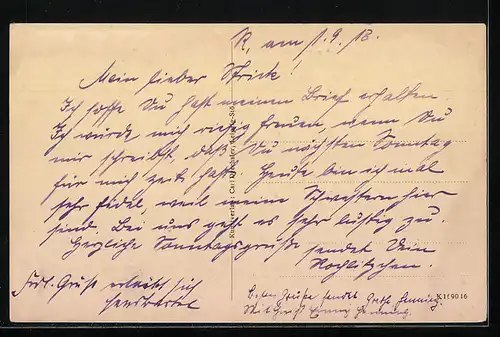 R, am 1.9.18.
Mein lieber Strick!
Ich hoffe Du hast meinen Brief erhalten.
Ich würde mich riesig freuen, wenn Du
mir schreibst, daß Du nächsten Sonntag
für mich Zeit hast. Heute bin ich mal
sehr fidel, weil meine Schwestern hier
sind. Bei uns geht es sehr lustig zu.
Herzliche Sonntagsgrüße sendet Dein
Rochlitzchen.
Frdl. Gruß erlaubt sich
Beste Grüße sendet Grete Hennig.
Mit Gruß Hennig.
K 119016